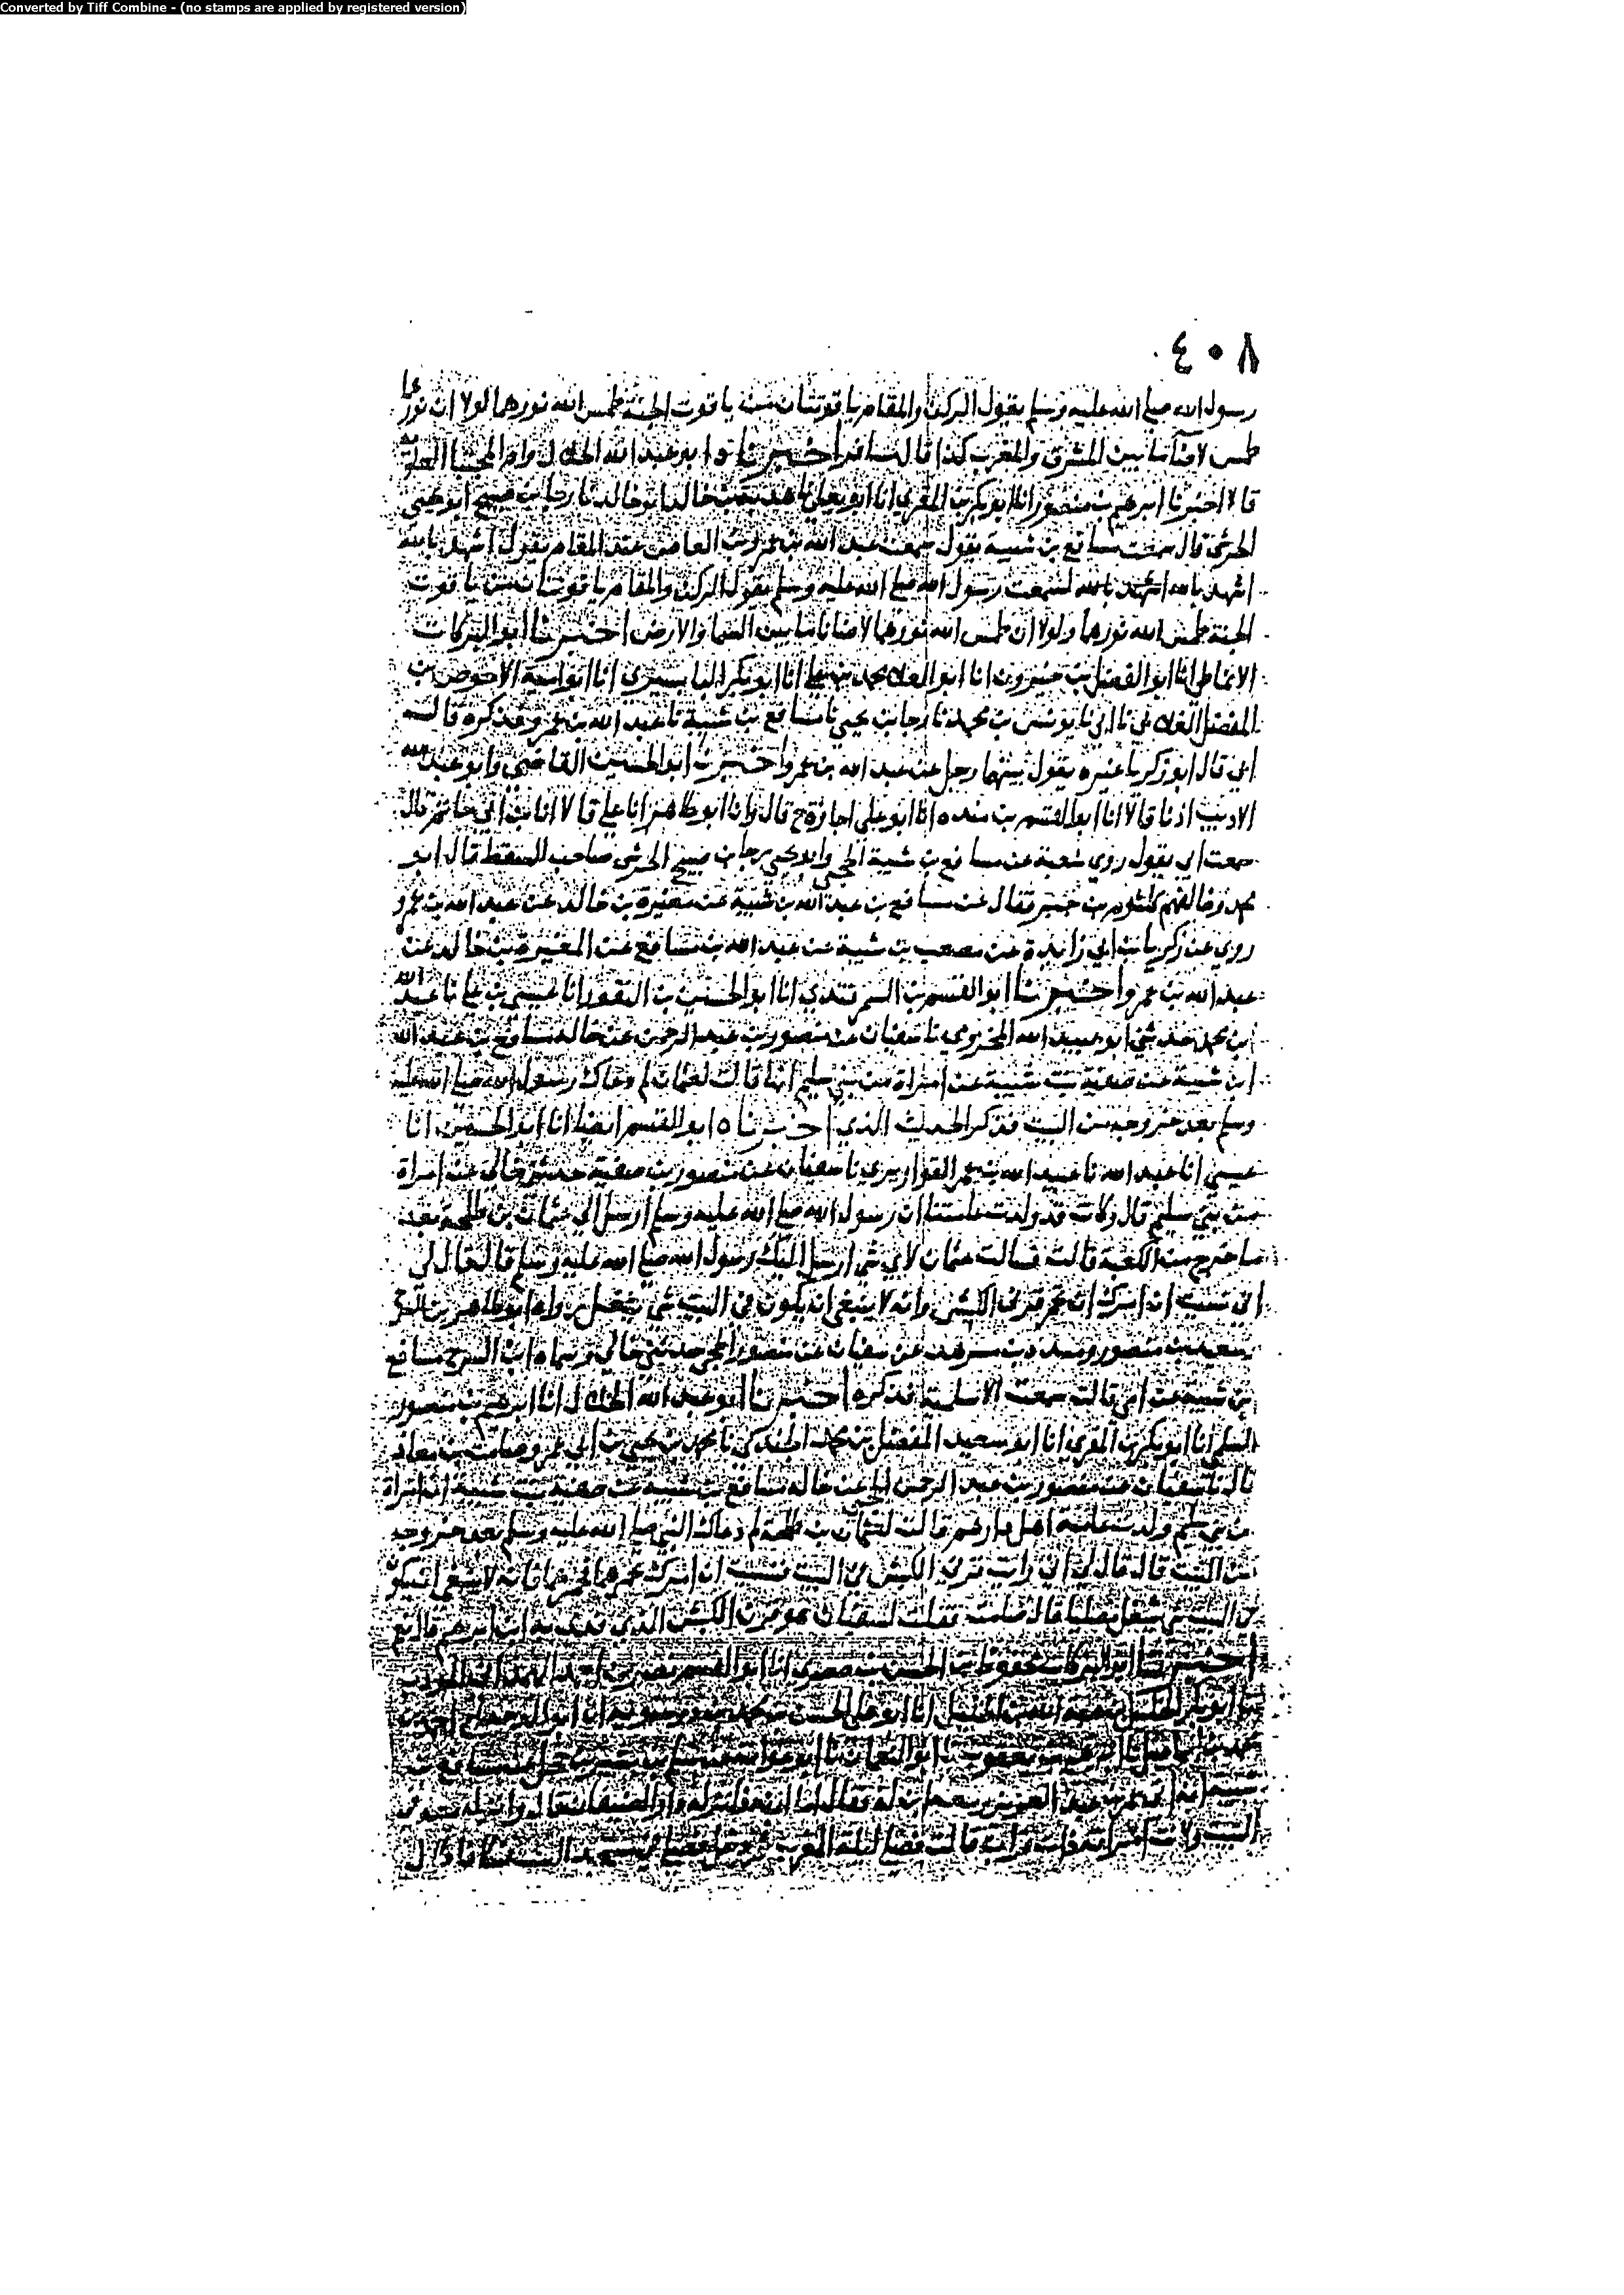 Converted by Tiff Combine - (no stamps are applied by registered version)
٤٠٨
رسول الله صلى الله عليه وسلم يقول الركن والمقام ياقوتتان من ياقوت الجنة طمس الله نورهما لولا ان نورهما
طمس لاضآ ما بين المشرق والمغرب كذا قال اخبرنا ابو عبد الله الخلال وام المجتبا العلوية
قالا اخبرنا ابرهيم بن منصور انا ابو بكر بن المقري انا ابو يعلى نا هدبة بن خالد ابو خالد نا رجا بن صبيح ابو يحيى
الحرشي قال سمعت مسافع بن شيبة يقول سمعت عبد الله بن عمرو بن العاص عند المقام يقول اشهد بالله
اشهد بالله اشهد بالله لسمعت رسول الله صلى الله عليه وسلم يقول الركن والمقام ياقوتتان من ياقوت
الجنة طمس الله نورهما ولولا ان طمس الله نورهما لاضانا ما بين السما والارض اخبرنا ابو البركات
الانماطي انا ابو الفضل بن خيرون انا ابو العلا محمد بن علي انا ابو بكر البابسيري انا ابو امية الاحوص بن
المفضل الغلابي نا ابي نا يونس بن محمد نا رجا بن يحيى نا مسافع بن شيبة نا عبد الله بن عمرو فذكره قال
ابي قال ابو زكريا غيره يقول بينهما رجل عن عبد الله بن عمرو اخبرنا ابو الحسين القاضي وابو عبد الله
الاديب اذنا قالا انا ابو القسم بن منده انا ابو علي اجازة ح قال وانا ابو طاهر انا علي قالا انا ابن ابي حاتم قال
سمعت ابي يقول روى شعبة عن مسافع بن شيبة الحجبي وابو يحيى رجا بن صبيح الحرشي صاحب السقط قال ابو
محمد وخالفهم كلثوم بن جبر فقال عن مسافع بن عبد الله بن شيبة عن مغيرة بن خالد عن عبد الله بن عمرو
روى عن زكريا بن ابي زائدة عن مصعب بن شيبة عن عبد الله بن مسافع عن المغيرة بن خالد عن
عبد الله بن عمرو اخبرنا ابو القسم بن السمرقندي انا ابو الحسين بن النقور انا عيسى بن علي نا عبد الله
ابن محمد حدثني ابو عبيد الله المخزومي نا سفيان عن منصور بن عبد الرحمن عن خاله مسافع بن عبد الله
ابن شيبة عن صفية بنت شيبة عن امراة من بني سليم انها قالت لعثمان لم دعاك رسول الله صلى الله عليه
وسلم بعد خروجه من البيت فذكر الحديث الذي اخبرناه ابو القسم ايضا انا ابو الحسين انا
عيسى انا عبد الله نا عبيد الله بن عمر القواريري نا سفيان عن منصور بن صفية حدثني خالي عن امراة
من بني سليم قال وكانت قد ولدت عامتنا ان رسول الله صلى الله عليه وسلم ارسل الى عثمان بن طلحة بعد
ما خرج من الكعبة قالت فسالت عثمان لاي شي ارسل اليك رسول الله صلى الله عليه وسلم قال قال لي
اني نسيت ان امرك ان تخمر قرني الكبش وانه لا ينبغي ان يكون في البيت شي يشغل رواه ابو طاهر بن السرح
سعيد بن منصور ومسدد بن مسرهد عن سفيان عن منصور الحجبي حدثني خالي وسماه ابن السرح مسافع
بن شيبة عن امي قالت سمعت الاسلمية فذكره اخبرنا ابو عبد الله الخلال انا ابرهيم بن منصور
السلمي انا ابو بكر بن المقري انا ابو سعيد المفضل بن محمد الجندي نا محمد بن يحيى بن ابي عمر وصامت بن معاذ
قالا نا سفيان عن منصور بن عبد الرحمن الحجبي عن خاله مسافع بن شيبة عن صفية بنت شيبة ان امراة
من بني سليم ولدت عامة اهل دارهم قالت لعثمان بن طلحة لم دعاك النبي صلى الله عليه وسلم بعد خروجه
من البيت قال قال لي اني رايت قرني الكبش في البيت فنسيت ان امرك تخمرهما فخمرهما فانه لا ينبغي ان يكون
في البيت شي يشغل مصليا قال صامت فقلت لسفيان هو قرن الكبش الذي فدي به ابن ابرهيم قال نعم
اخبرنا ابو البركات محفوظ بن الحسن بن صصرى انا ابو القسم نصر بن احمد الهمداني المؤدب
انا ابو بكر الخليل بن هبة الله بن الخليل انا ابو علي الحسن بن محمد بن درستويه انا ابو الدحداح احمد بن
محمد بن اسماعيل نا ابرهيم بن يعقوب نا ابو النعمان نا ابو عوانة
شيبة انه اتى عمر بن عبد العزيز ومعه ابن له فقال
البيت